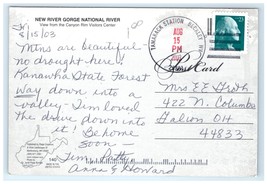 NEW RIVER GORGE NATIONAL RIVER
View from the Canyon Rim Visitors Center
8/15/03
Mtns are beautiful
no drought here!
Kanawha State Forest
way down into a
valley - Jim loved
the drive down into
it! Be home
soon -
Jim
Anna & Howard
TAMARACK STATION BECKLEY WV
AUG
15
PM
23
Post Card
Mrs E E Groth
422 N. Columbus
Galion, OH
44833